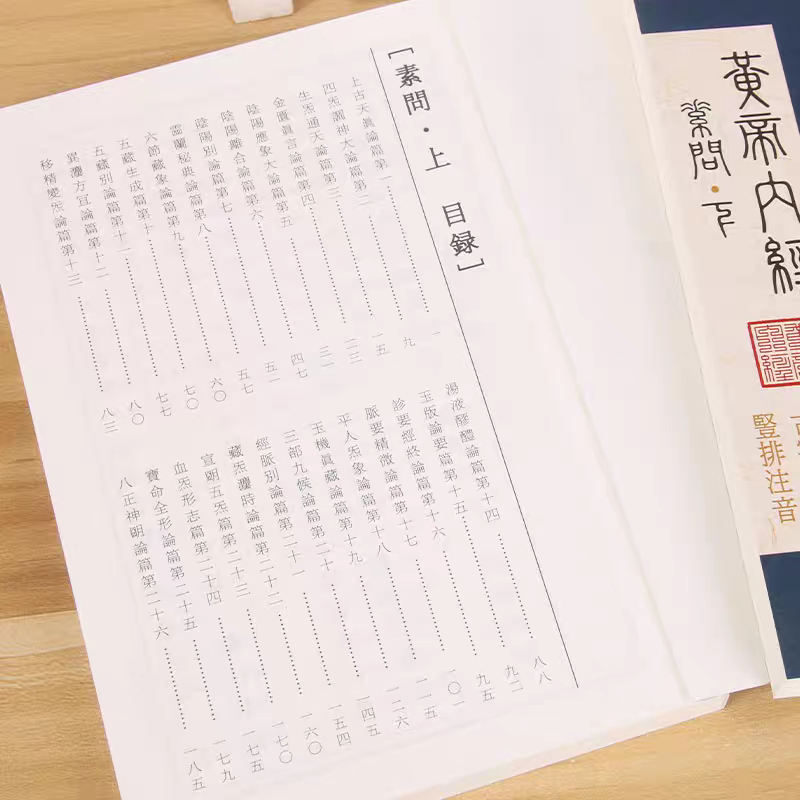 [素問·上 目録]
上古天眞論篇第一……一
四炁調神大論篇第二……九
生炁通天論篇第三……一五
金匱眞言論篇第四……二三
陰陽應象大論篇第五……三一
陰陽離合論篇第六……四七
陰陽別論篇第七……五一
靈蘭秘典論篇第八……五七
六節藏象論篇第九……六〇
五藏生成篇第十……七〇
五藏別論篇第十一……七七
異灋方宜論篇第十二……八〇
移精變炁論篇第十三……八三
湯液醪醴論篇第十四……八八
玉版論要篇第十五……九二
診要經終論篇第十六……九五
脈要精微論篇第十七……一〇一
平人炁象論篇第十八……一一五
玉機眞藏論篇第十九……一二六
三部九候論篇第二十……一四五
經脈別論篇第二十一……一五四
藏炁灋時論篇第二十二……一六〇
宣朙五炁篇第二十三……一七〇
血炁形志篇第二十四……一七五
寶命全形論篇第二十五……一七九
八正神朙論篇第二十六……一八五
黃帝內經
素問·下
豎排注音